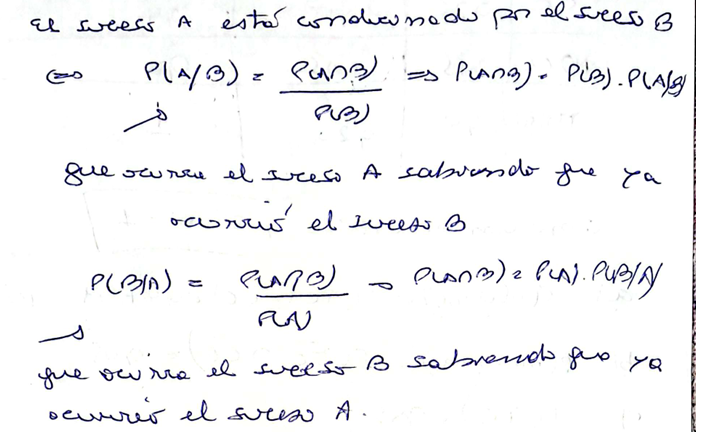 El suceso A está condicionado por el suceso B
⇔ P(A/B) = P(A∩B) / P(B) ⇒ P(A∩B) = P(B) . P(A/B)
que ocurra el suceso A sabiendo que ya
ocurrió el suceso B
P(B/A) = P(A∩B) / P(A) → P(A∩B) = P(A) . P(B/A)
que ocurra el suceso B sabiendo que ya
ocurrió el suceso A.